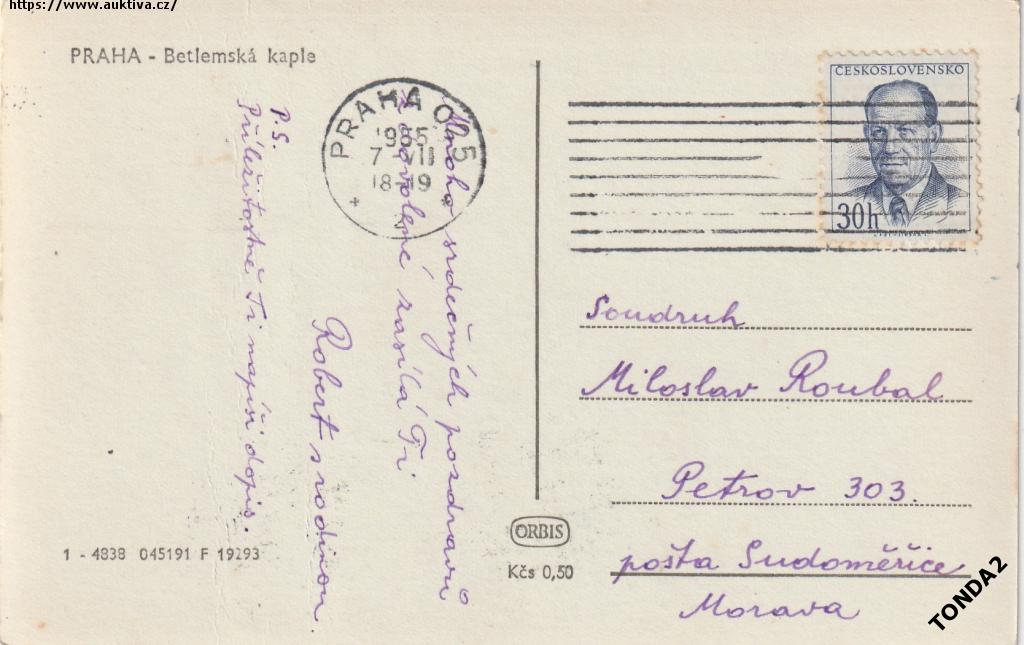 https://www.auktiva.cz/
PRAHA - Betlemská kaple
PRAHA 025
1955
7 - VII
18-19
ČESKOSLOVENSKO
30h
Mnoho srdečných pozdravů
z dovolené zasílá Ti
Robert s rodinou
P.S.
Příležitostně Ti napíši dopis.
Soudruh
Miloslav Roubal
Petrov 303.
pošta Sudoměřice
Morava
ORBIS
Kčs 0,50
1 - 4838 045191 F 19293
TONDA2